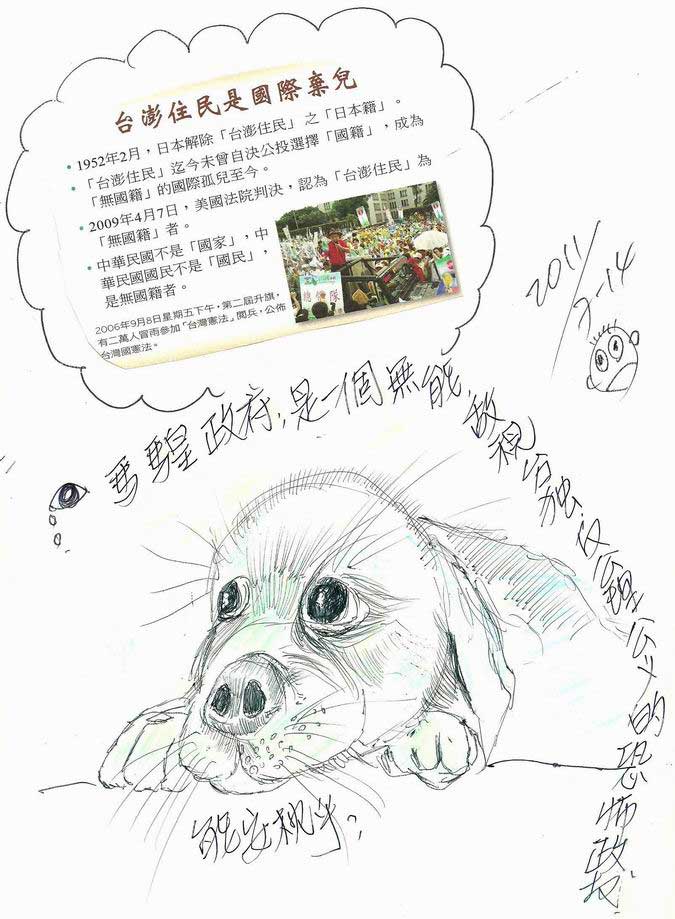 台澎住民是國際棄兒
• 1952年2月，日本解除「台澎住民」之「日本籍」。
• 「台澎住民」迄今未曾自決公投選擇「國籍」，成為
「無國籍」的國際孤兒至今。
• 2009年4月7日，美國法院判決，認為「台澎住民」為
「無國籍」者。
• 中華民國不是「國家」，中
華民國國民不是「國民」，
是無國籍者。
2006年9月8日星期五下午，第二屆升旗，
有二萬人冒雨參加「台灣憲法」閱兵，公佈
台灣國憲法。
2011
2-14
政府，是一個無能，敵視台獨
的恐怖政